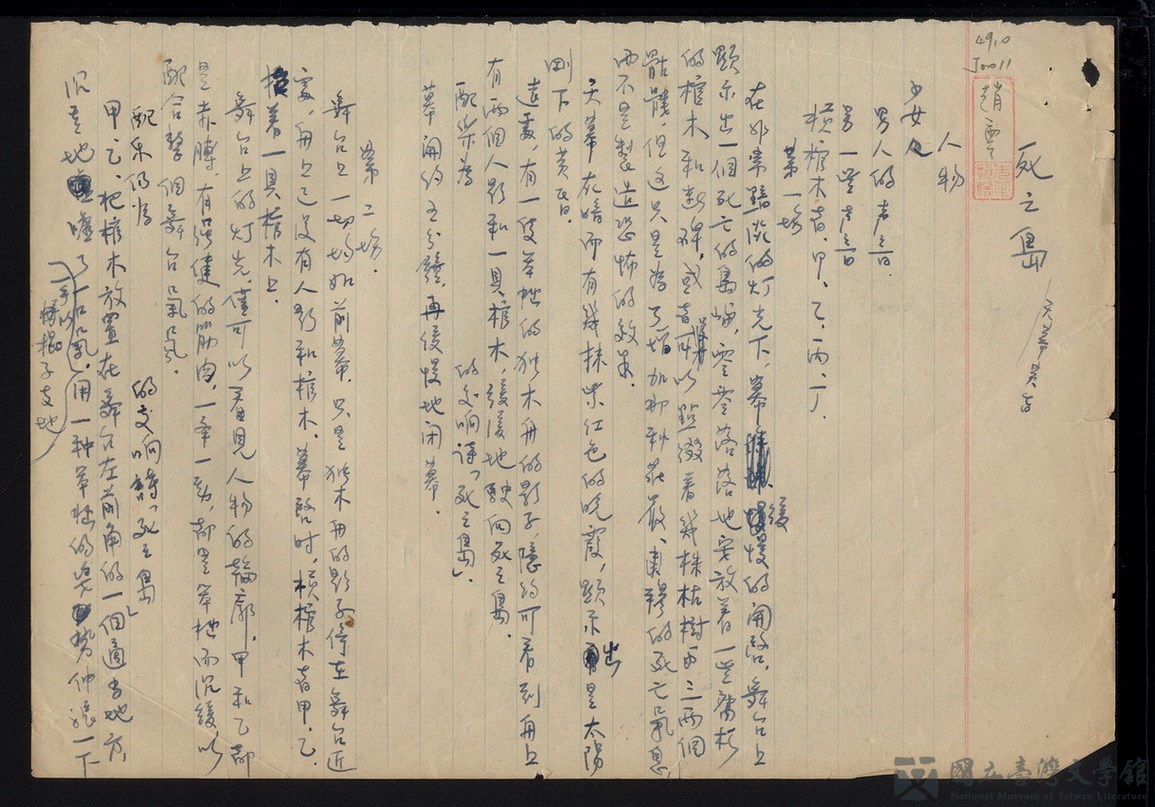 49.0
J0011
趙雲
死之島
人物
少女
男人的声音.
另一些声音
槓棺木者,甲、乙、丙、丁.
第一場
在非常黯淡的灯光下,幕緩慢的開啓.舞台上
顯示出一個死亡的島嶼,零零落落地安放着一些腐朽
的棺木和断碑,或者可以點綴着幾株枯樹两三個
骷髏,但这只是為了增加那种莊嚴、肅穆的死亡氣息
而不是製造恐怖的效果.
天幕在暗而有幾抹紫紅色的晚霞,顯示出是太陽
剛下的黄昏.
遠處,有一隻笨拙的独木舟的影子,隱約可看到舟上
有两個人影和一具棺木,緩緩地駛向死之島.
配樂為 的交响詩「死之島」.
幕開約五分鐘,再緩慢地闭幕.
第二場.
舞台上一切均如前幕.只是独木舟的影子停在舞台近
處,舟上已没有人影和棺木.幕啓時,槓棺木者甲、乙
抬着一具棺木上.
舞台上的灯光,僅可以看見人物的輪廓.甲和乙都
是赤膊,有强健的筋肉,一举一動,都是笨拙而沉緩以
配合整個舞台氣氛.
配乐仍為 的交响詩「死之島」
甲、乙把棺木放置在舞台左前角的一個適当地方,
沉重地噓了一口氣,用一种笨拙的姿势伸張一下
(手以
槓棍子支地)
國立臺灣文學館
National Museum of Taiwan Literature